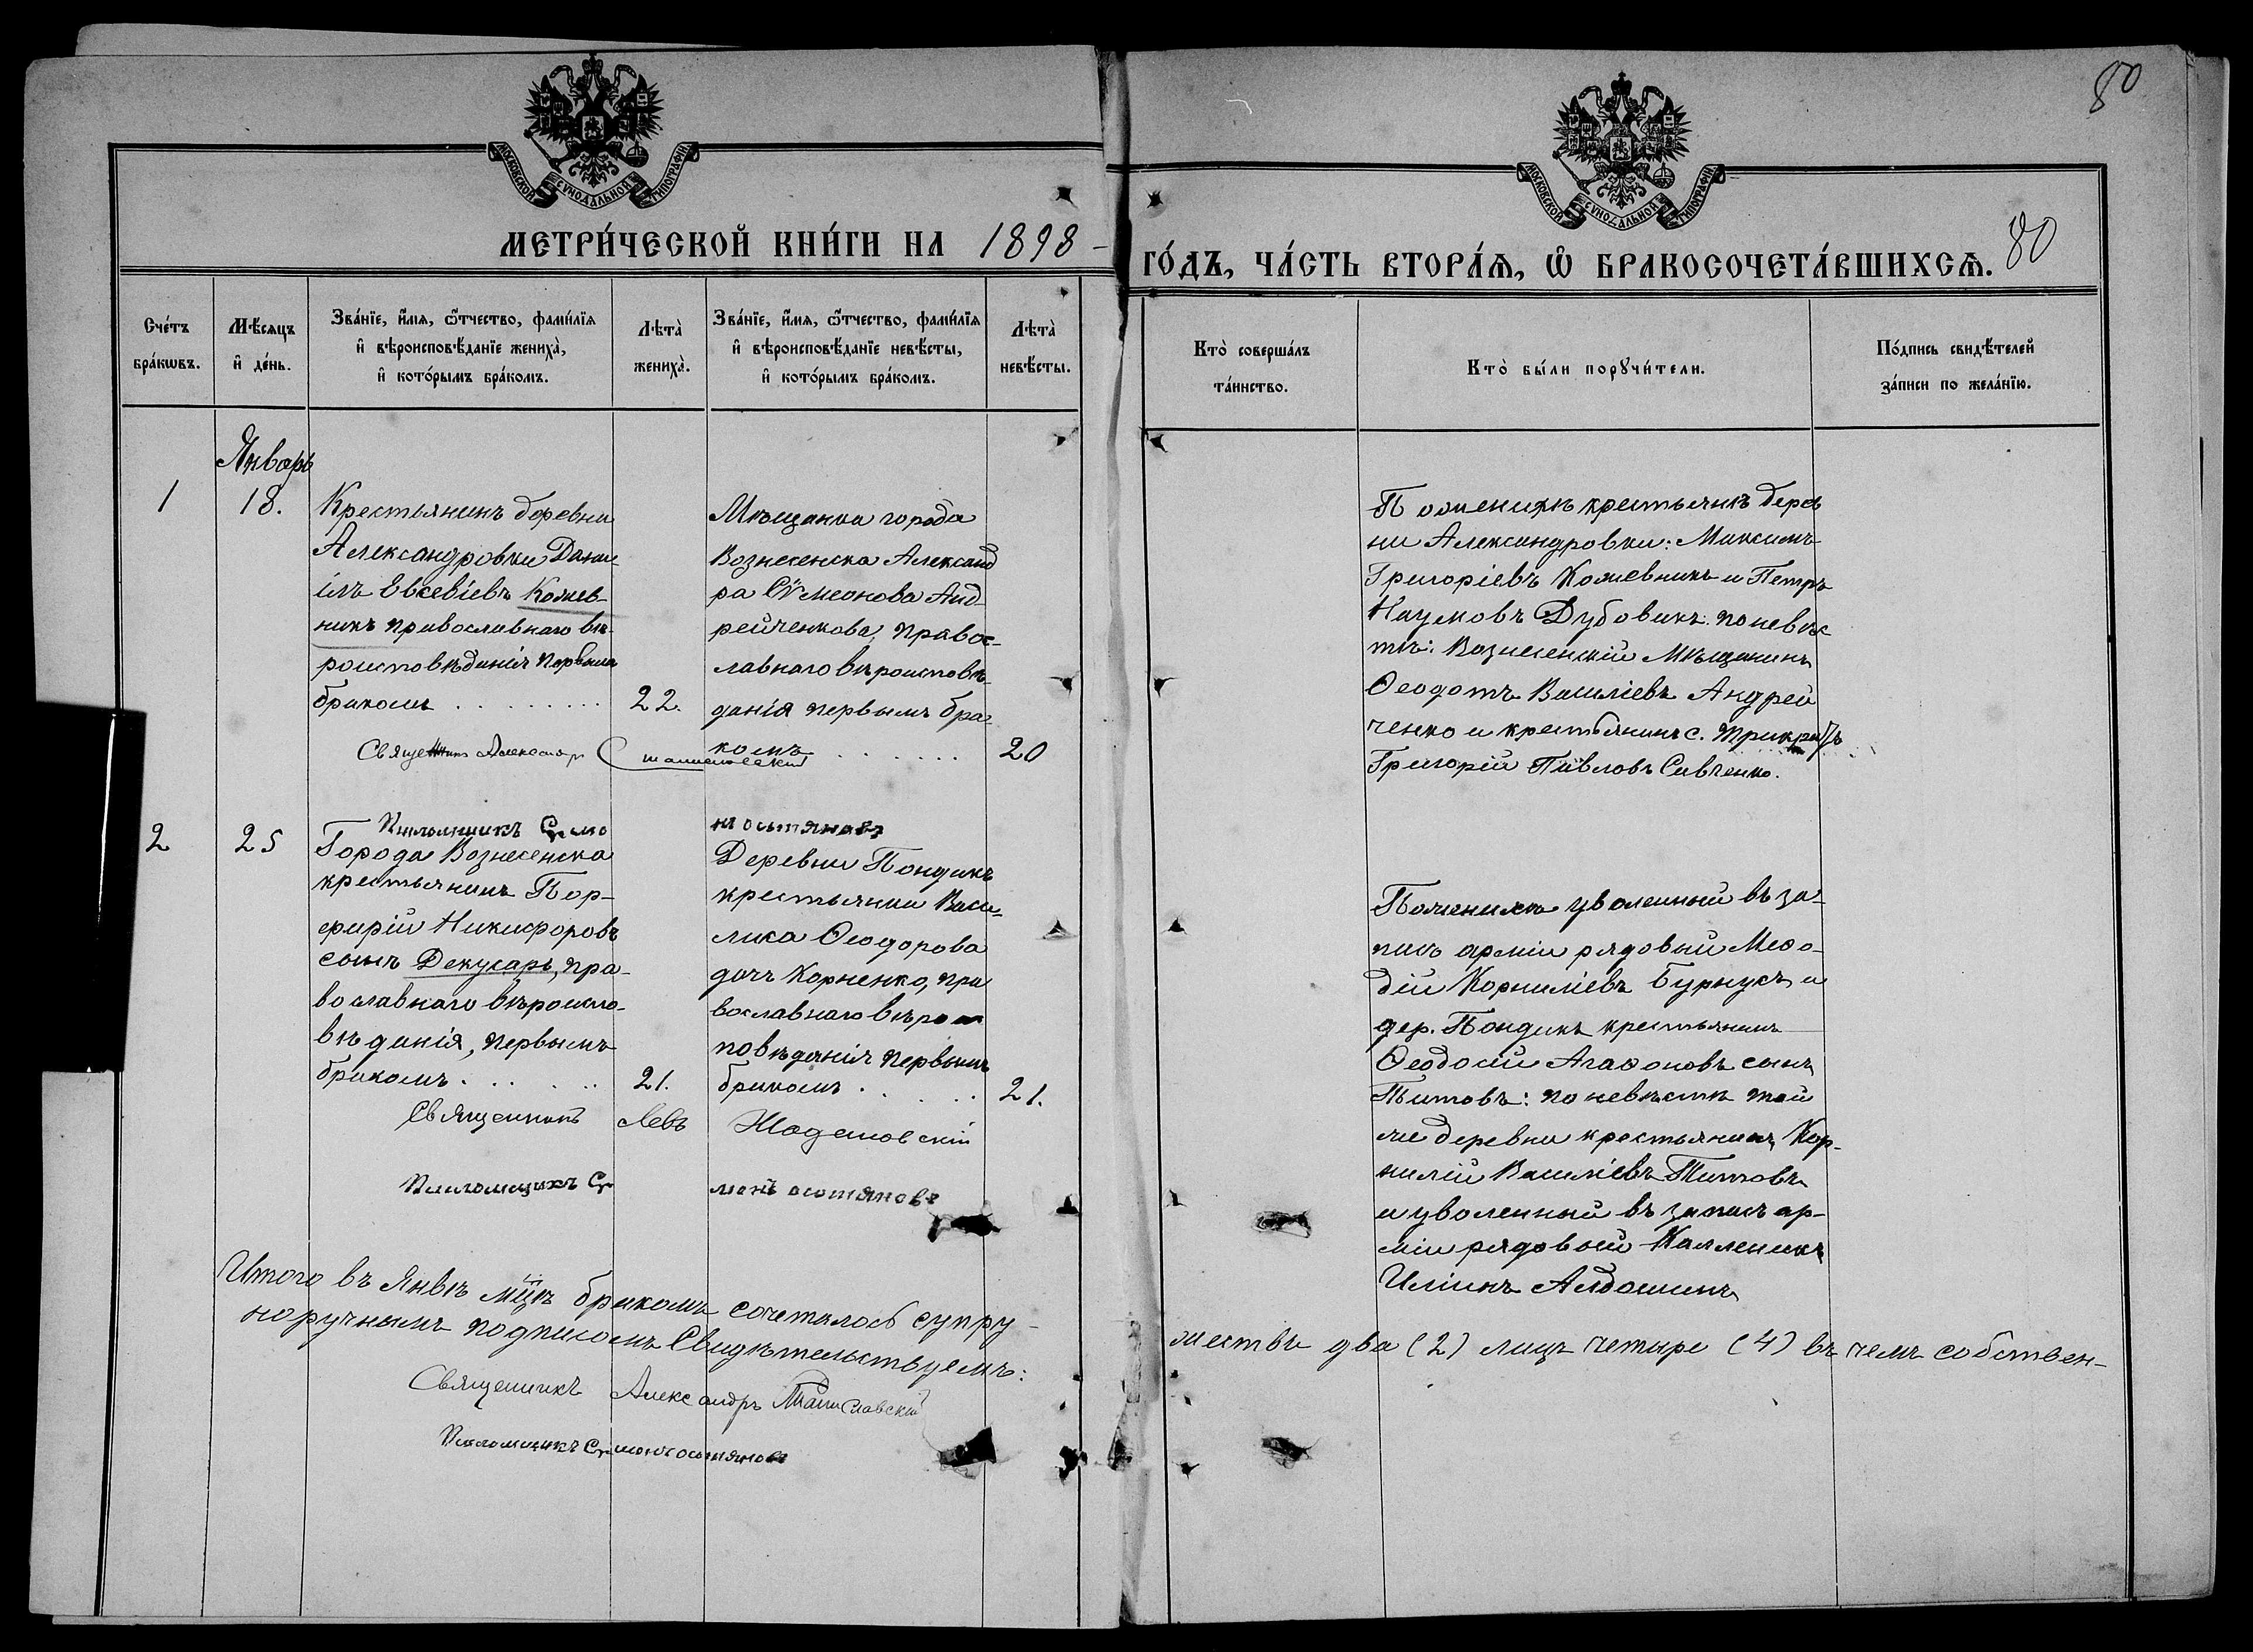 80
МОСКОВСКОЙ СУНОДАЛЬНОЙ ТИПОГРАФІИ
МОСКОВСКОЙ СУНОДАЛЬНОЙ ТИПОГРАФІИ
МЕТРИ́ЧЕСКОЙ КНИ́ГИ НА 1898 -
ГО́ДЪ, ЧА́СТЬ ВТОРА́Ѧ, Ѽ БРАКОСОЧЕТА́ВШИХСѦ. 80
Сче́тъ бра́кѡвъ.
Мѣ́сяцъ и҆ де́нь.
Зва́нїе, и҆́мя, ѻ҆́тчество, фами́лїя
и҆ вѣроисповѣ́данїе жениха̀,
и҆ кото́рымъ бра́комъ.
Лѣта̀ жениха̀.
Зва́нїе, и҆́мя, ѻ҆́тчество, фами́лїя
и҆ вѣроисповѣ́данїе невѣ́сты,
и҆ кото́рымъ бра́комъ.
Лѣта̀ невѣ́сты.
Кто̀ соверша́лъ та́инство.
Кто̀ бы́ли порꙋчи́тели.
По́дпись свидѣ́телей за́писи по жела́нїю.
Январь
1
18.
Крестьянинъ деревни
Александровки Дани-
илъ Евсевіевъ Кожев-
никъ православнаго вѣ-
роисповѣданія первымъ
бракомъ . . . . . . . .
22.
Мѣщанка города
Вознесенска Александ
ра Сѵмеонова Анд-
рейченкова, правос-
лавнаго вѣроисповѣ-
данія первымъ бра-
комъ . . . . . .
20
Священникъ Александръ Станиславскій
По женихѣ крестьянѣ дерев
ни Александровки: Максимъ
Григоріевъ Кожевникъ и Петръ
Наумовъ Дубовикъ. по невѣс
тѣ: Вознесенскій Мѣщанинъ
Ѳеодотъ Василіевъ Андрей
ченко и крестьянинъ с. Трикратъ
Григорій Павловъ Савченко.
Псаломщикъ Сѵмеонъ
2
25
Города Вознесенска
крестьянинъ Пор-
фирій Никифоровъ
сынъ Декусаръ, пра-
вославнаго вѣроиспо-
вѣданія, первымъ
бракомъ . . . . .
21.
Деревни Пондикъ
крестьянка Васи-
лика Ѳеодорова
дочь Корненко, пра
вославнаго вѣрои
повѣданія первымъ
бракомъ . . . . .
21.
Священникъ Левъ
Псаломщикъ
По женихѣ уволенный въ за-
пасъ арміи рядовый Меѳо-
дій Корниліевъ Бурнусъ и
дер. Пондикъ крестьянинъ
Ѳеодосій Агаѳоновъ сынъ
Титовъ: по невѣстѣ той
же деревни крестьянинъ Кор-
нилій Василіевъ Титовъ
и уволенный въ запасъ ар-
міи рядовой Каленикъ
Иліинъ Алдошинъ
Итого въ Янвѣ мцѣ бракомъ сочеталось супру-
жества два (2) лицъ четыре (4) въ чемъ собствен-
норучнымъ подписомъ Свидѣтельствуемъ:
Священникъ Александръ Станиславскій
Псаломщикъ